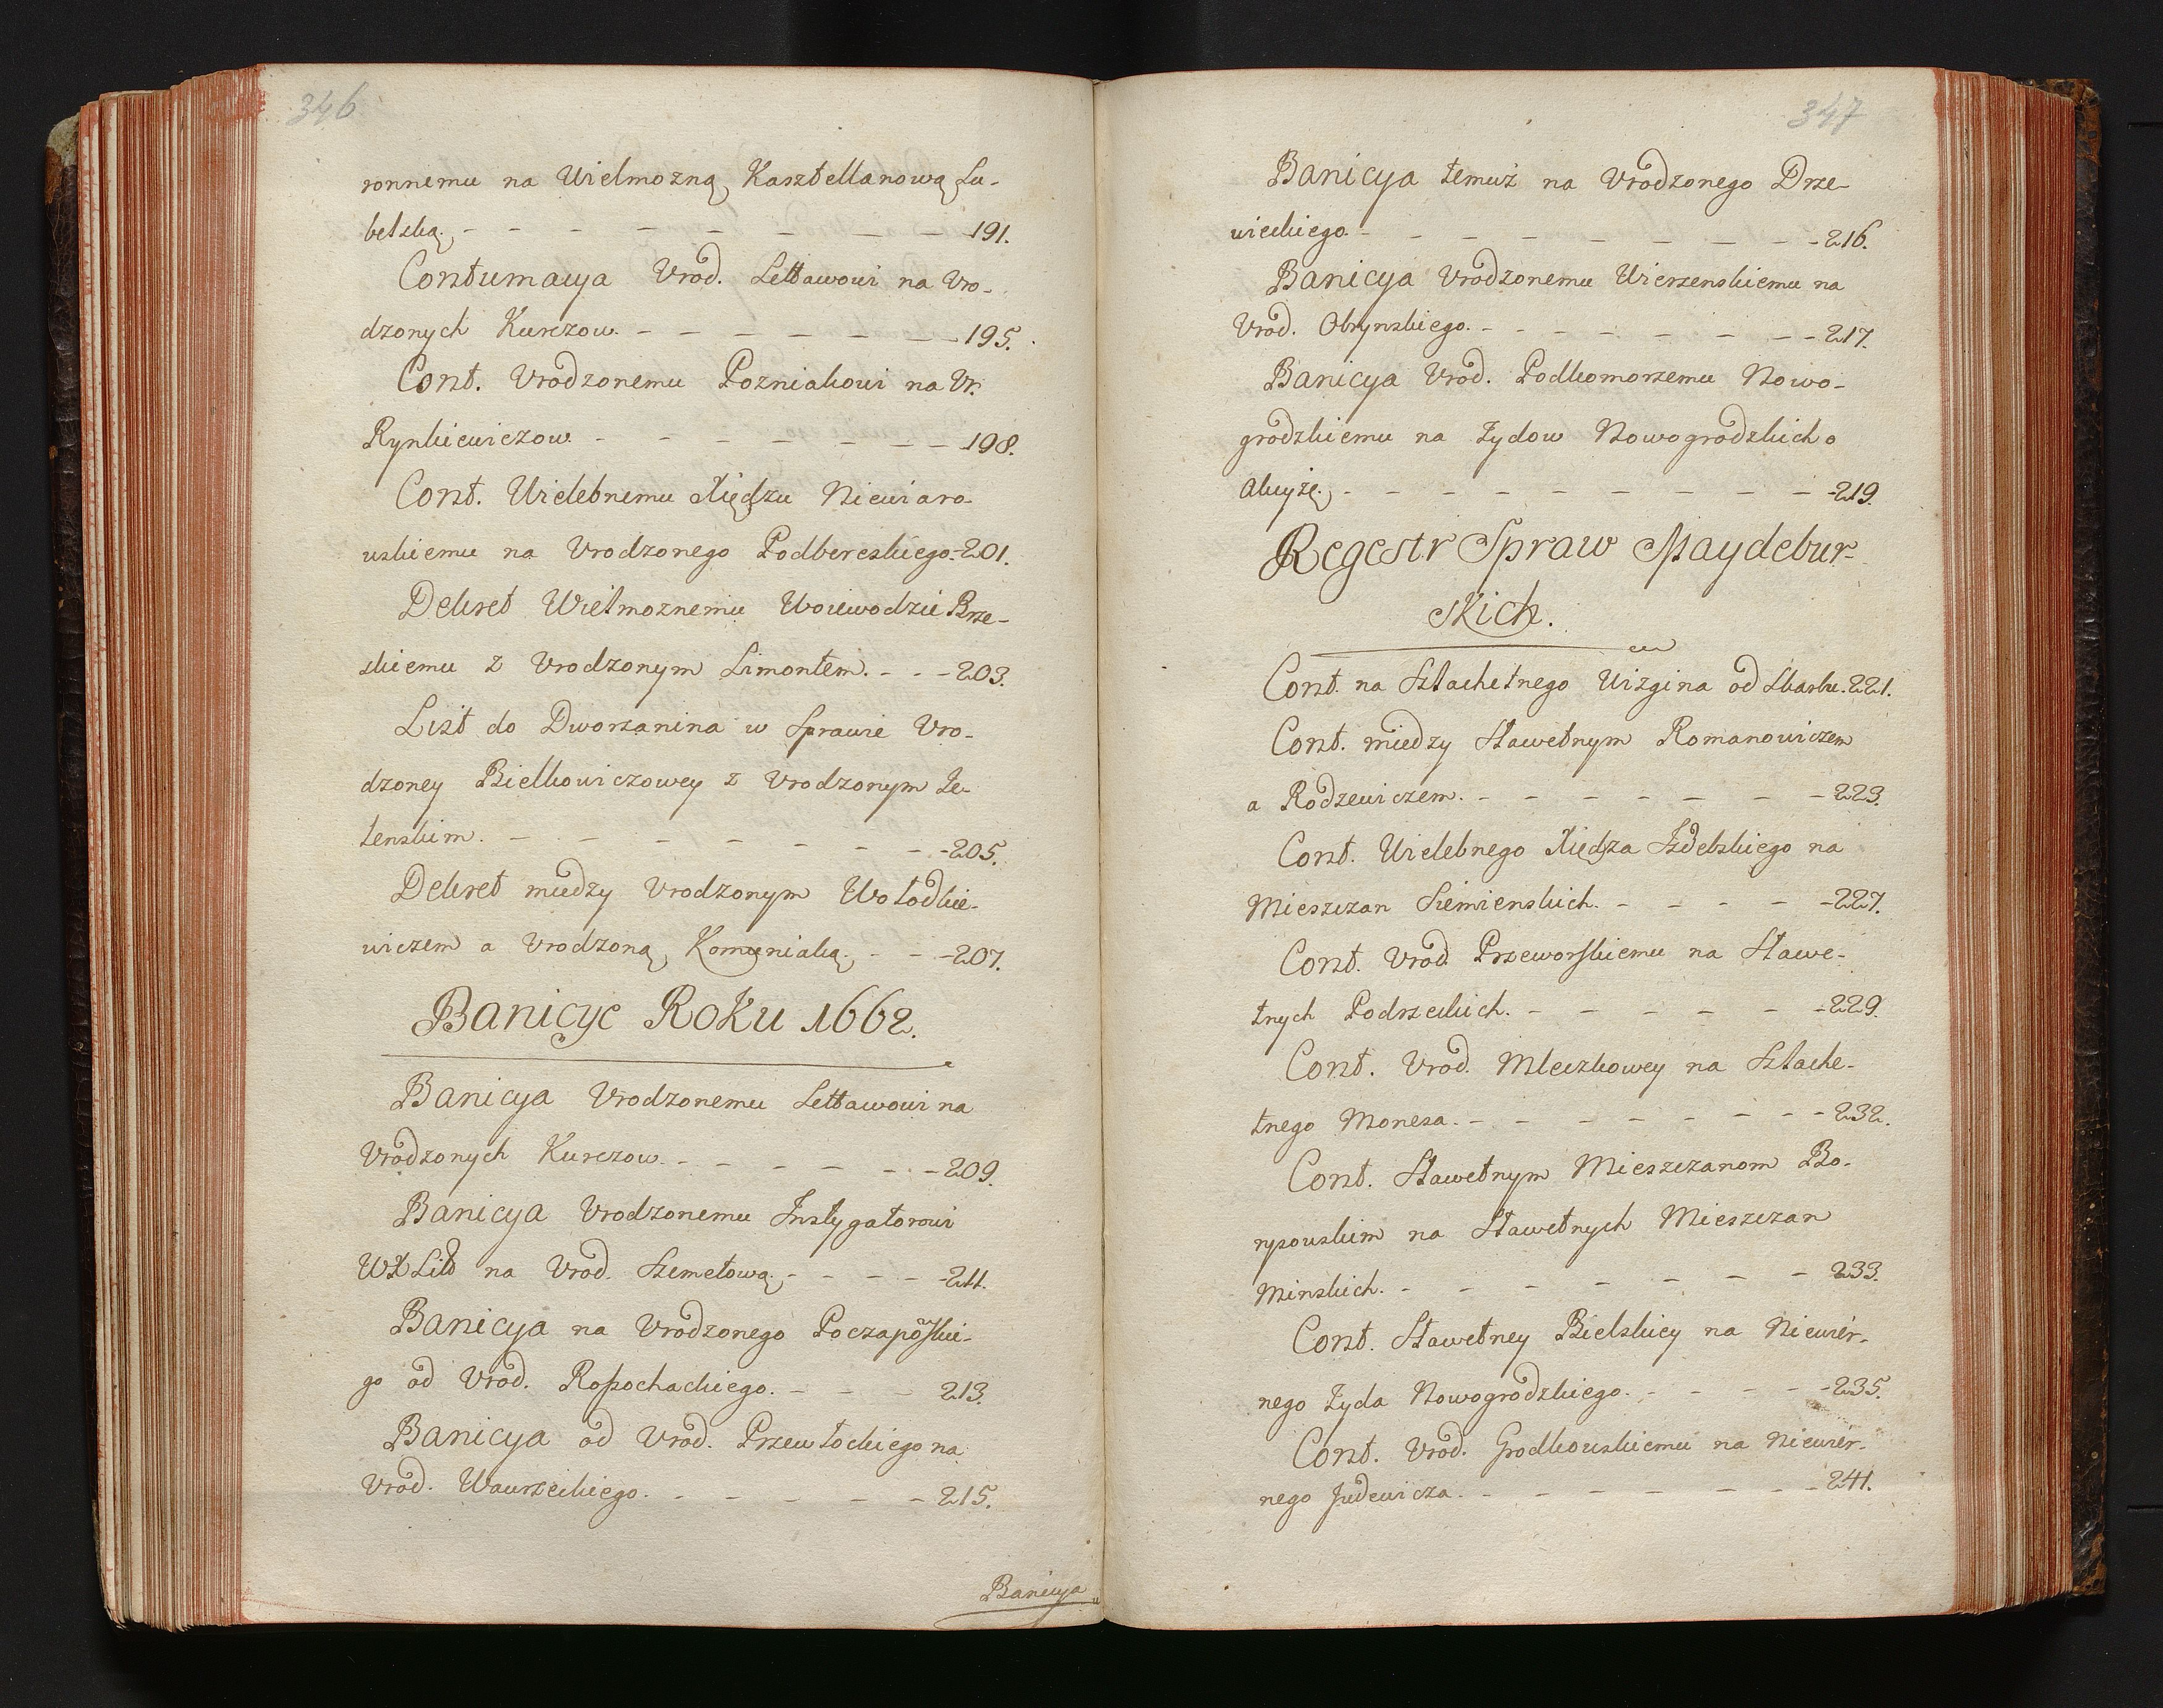 346
ronnemu na Wielmozną Kasztellanową Lu-
belską. - - - - - - - - - 191.
Contumacya Vrod. Lettawowi na Vro-
dzonych Kurczow. - - - - - - - 195.
Cont. Vrodzonemu Pozniakowi na Vr.
Rynkiewiczow - - - - - - - - 198.
Cont. Wielebnemu Xiędzu Niewiaro-
wskiemu na Vrodzonego Podbereskiego. - 201.
Dekret Wielmoznemu Woiewodzie Brze-
skiemu z Vrodzonym Limontem. - - - 203.
List do Dworzanina w Sprawie Vro-
dzoney Bielkowiczowey z Vrodzonym Ze-
lenskim. - - - - - - - - - 205.
Dekret miedzy Vrodzonym Wołodkie-
wiczem a Vrodzoną Komuniaką. - - - 207.
Banicye Roku 1662.
Banicya Vrodzonemu Lettawowi na
Vrodzonych Kurczow. - - - - - - 209.
Banicya Vrodzonemu Instygatorowi
WXLitt na Vrod. Szemetową. - - - - 211.
Banicya na Vrodzonego Poczapoſkie-
go od Vrod. Roſsochackiego. - - - 213.
Banicya od Vrod. Przewłockiego na
Vrod. Wawrzeckiego. - - - - - - 215.
Banicya
347
Banicya temuż na Vrodzonego Drze-
wieckiego. - - - - - - - - - 216.
Banicya Vrodzonemu Wierzenskiemu na
Vrod. Obrynskiego. - - - - - - - 217.
Banicya Vrod. Podkomorzemu Nowo-
grodzkiemu na Żydow Nowogrodzkich o
Akcyżę. - - - - - - - - - - 219.
Regestr Spraw Maydebur-
skich.
Cont. na Szlachetnego Wizgina od Skarbu. 221.
Cont. miedzy Sławetnym Romanowiczem
a Rodzewiczem. - - - - - - - - 223.
Cont. Wielebnego Xiędza Izdebskiego na
Mieszczan Siemienskich. - - - - - 227.
Cont. Vrod. Przeworſkiemu na Sławe-
tnych Podrzeckich. - - - - - - 229.
Cont. Vrod. Mleczkowey na Szlache-
tnego Monesa. - - - - - - - - 232.
Cont. Sławetnym Mieszczanom Bo-
rysowskim na Sławetnych Mieszczan
Minskich. - - - - - - - - 233.
Cont. Sławetney Bielskiey na Niewier-
nego Żyda Nowogrodzkiego. - - - - - 235.
Cont. Vrod. Grodkowskiemu na Niewier-
nego Judewicza. - - - - - - - - 241.